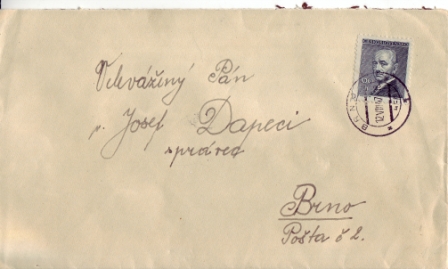 Velevážený Pán
p. Josef Dapeci
správce
Brno
Pošta č 2.